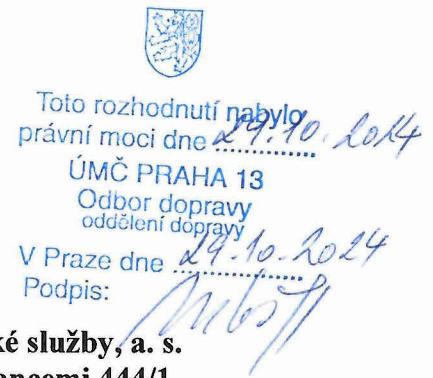 Toto rozhodnutí nabylo
právní moci dne 29.10.2024
ÚMČ PRAHA 13
Odbor dopravy
oddělení dopravy
V Praze dne 29.10.2024
Podpis:
ké služby, a. s.
ancemi 444/1